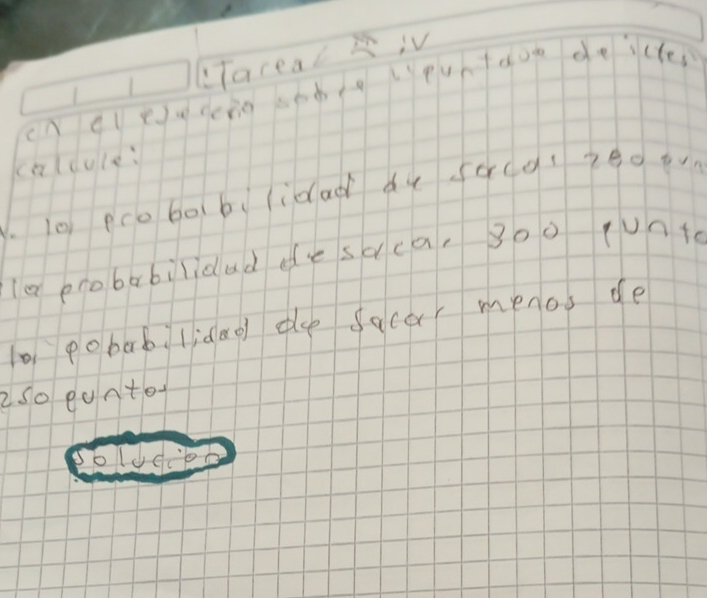 Tarea iv
en el de icfes
calcule:
1. la probabilidad de sacar 280 pun
la probabilidad de sacar 300 punto
la pobabilidad de sacar menos de
250 puntos
solucion